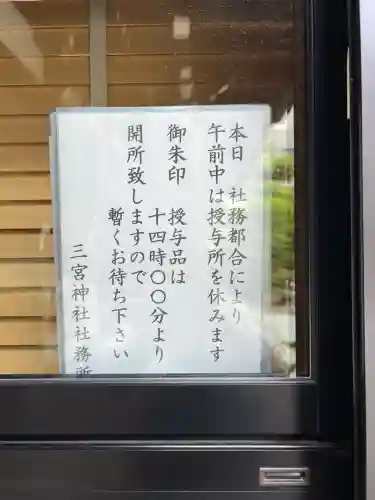 本日 社務都合により
午前中は授与所を休みます
御朱印 授与品は
十四時〇〇分より
開所致しますので
暫くお待ち下さい
三宮神社社務所